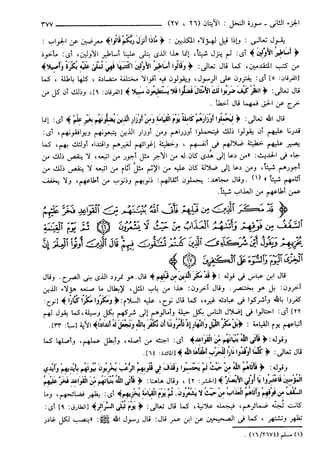 الجزء الثاني - سورة النحل : الآيتان (٢٦ ، ٢٧) ٣٧٧
يقول تعالى : وإذا قيل لهؤلاء المكذبين : ﴿ ماذا أنزل ربكم قالوا ﴾ معرضين عن الجواب :
﴿ أساطير الأولين ﴾ أي : لم ينزل شيئاً، إنما هذا الذي يتلى علينا أساطير الأولين، أي : مأخوذ
من كتب المتقدمين، كما قال تعالى: ﴿ وقالوا أساطير الأولين اكتتبها فهي تملى عليه بكرة وأصيلا ﴾
[الفرقان : ٥] أي: يفترون على الرسول، ويقولون فيه أقوالا مختلفة متضادة ، كلها باطلة ، كما
قال تعالى: ﴿ انظر كيف ضربوا لك الأمثال فضلوا فلا يستطيعون سبيلا ﴾ [الفرقان : ٩]، وذلك أن كل من
خرج عن الحق فمهما قال أخطأ .
قال الله تعالى: ﴿ ليحملوا أوزارهم كاملة يوم القيامة ومن أوزار الذين يضلونهم بغير علم ﴾ أي: إنما
قدرنا عليهم أن يقولوا ذلك فيتحملوا أوزارهم ومن أوزار الذين يتبعونهم ويوافقونهم، أي:
يصير عليهم خطيئة ضلالهم في أنفسهم ، وخطيئة إغوائهم لغيرهم واقتداء أولئك بهم، كما
جاء في الحديث: «من دعا إلى هدى كان له من الأجر مثل أجور من اتبعه، لا ينقص ذلك من
أجورهم شيئاً، ومن دعا إلى ضلالة كان عليه من الإثم مثل آثام من اتبعه لا ينقص ذلك من
آثامهم شيئاً» (١) . وقال مجاهد: يحملون أثقالهم: ذنوبهم وذنوب من أطاعهم، ولا يخفف
عمن أطاعهم من العذاب شيئاً.
﴿ قد مكر الذين من قبلهم فأتى الله بنيانهم من القواعد فخر عليهم
السقف من فوقهم وأتاهم العذاب من حيث لا يشعرون ثم يوم القيامة
يخزيهم ويقول أين شركائي الذين كنتم تشاقون فيهم قال الذين أوتوا العلم إن الخزي
اليوم والسوء على الكافرين ﴾
قال ابن عباس في قوله : ﴿ قد مكر الذين من قبلهم ﴾ قال: هو نمرود الذي بنى الصرح. وقال
آخرون: بل هو بختنصر. وقال آخرون: هذا من باب المثل، لإبطال ما صنعه هؤلاء الذين
كفروا بالله وأشركوا في عبادته غيره، كما قال نوح، عليه السلام: ﴿ ومكروا مكرا كبارا ﴾ [نوح:
٢٢] أي : احتالوا في إضلال الناس بكل حيلة وأمالوهم إلى شركهم بكل وسيلة، كما يقول لهم
أتباعهم يوم القيامة : ﴿ بل مكر الليل والنهار إذ تأمروننا أن نكفر بالله ونجعل له أندادا ﴾ الآية [سبأ: ٣٣].
وقوله: ﴿ فأتى الله بنيانهم من القواعد ﴾ أي : اجتثه من أصله، وأبطل عملهم، وأصلها كما
قال تعالى: ﴿ كلما أوقدوا نارا للحرب أطفأها الله ﴾ [المائدة: ٦٤].
وقوله: ﴿ فأتاهم الله من حيث لم يحتسبوا وقذف في قلوبهم الرعب يخربون بيوتهم بأيديهم وأيدي
المؤمنين فاعتبروا يا أولي الأبصار ﴾ [الحشر: ٢] ، وقال هاهنا: ﴿ فأتى الله بنيانهم من القواعد فخر عليهم
السقف من فوقهم وأتاهم العذاب من حيث لا يشعرون. ثم يوم القيامة يخزيهم ﴾ أي: يظهر فضائحهم، وما
كانت تُجنّه ضمائرهم، فيجعله علانية، كما قال تعالى: ﴿ يوم تبلى السرائر ﴾ [الطارق: ٩] أي:
تظهر وتشتهر ، كما في الصحيحين عن ابن عمر قال: قال رسول الله ﷺ: «ينصب لكل غادر
(١) مسلم (١٦/٢٦٧٤) .